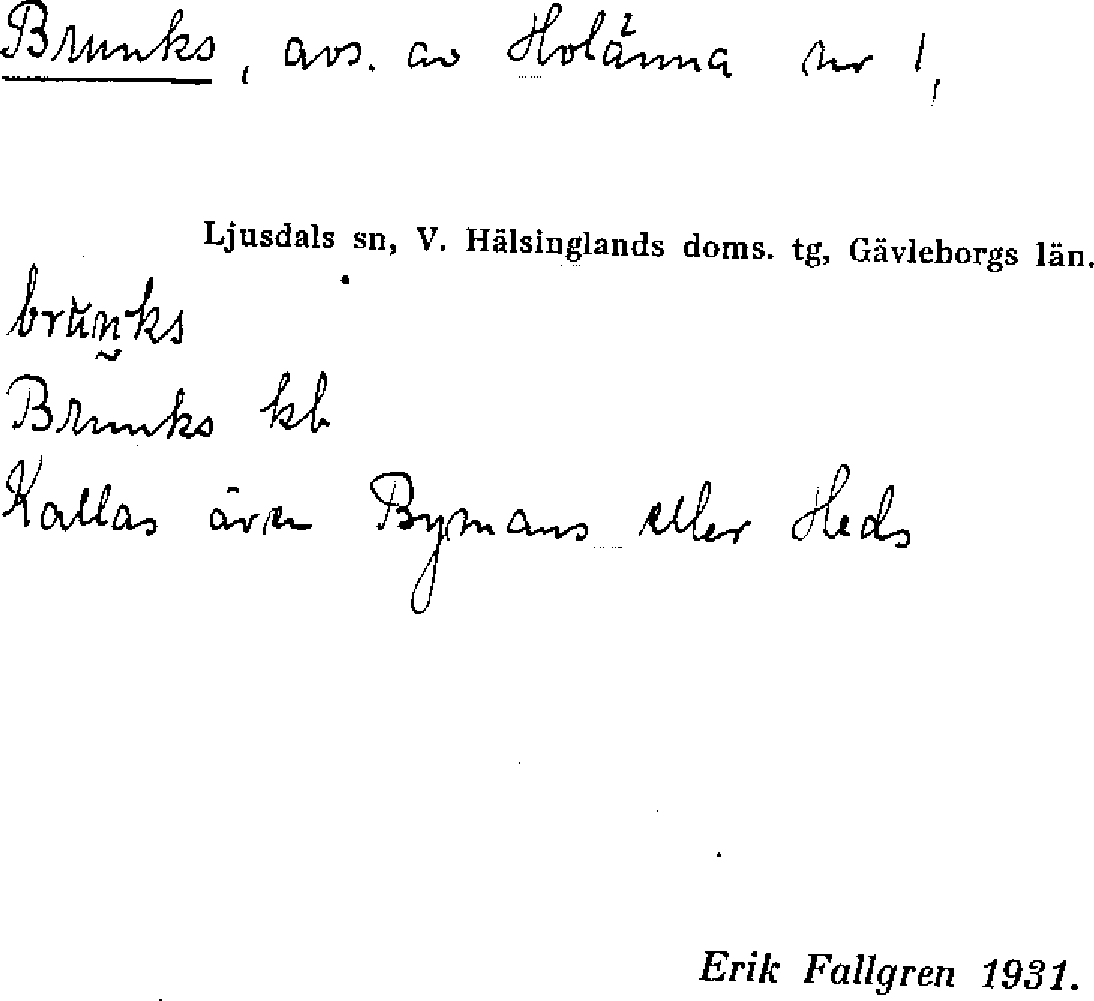 Brunks, avs. av Holänna nr 1,
Ljusdals sn, V. Hälsinglands doms. tg, Gävleborgs län.
brun̰ks
Brunks kb
Kallas även Bymans eller Heds
Erik Fallgren 1931.